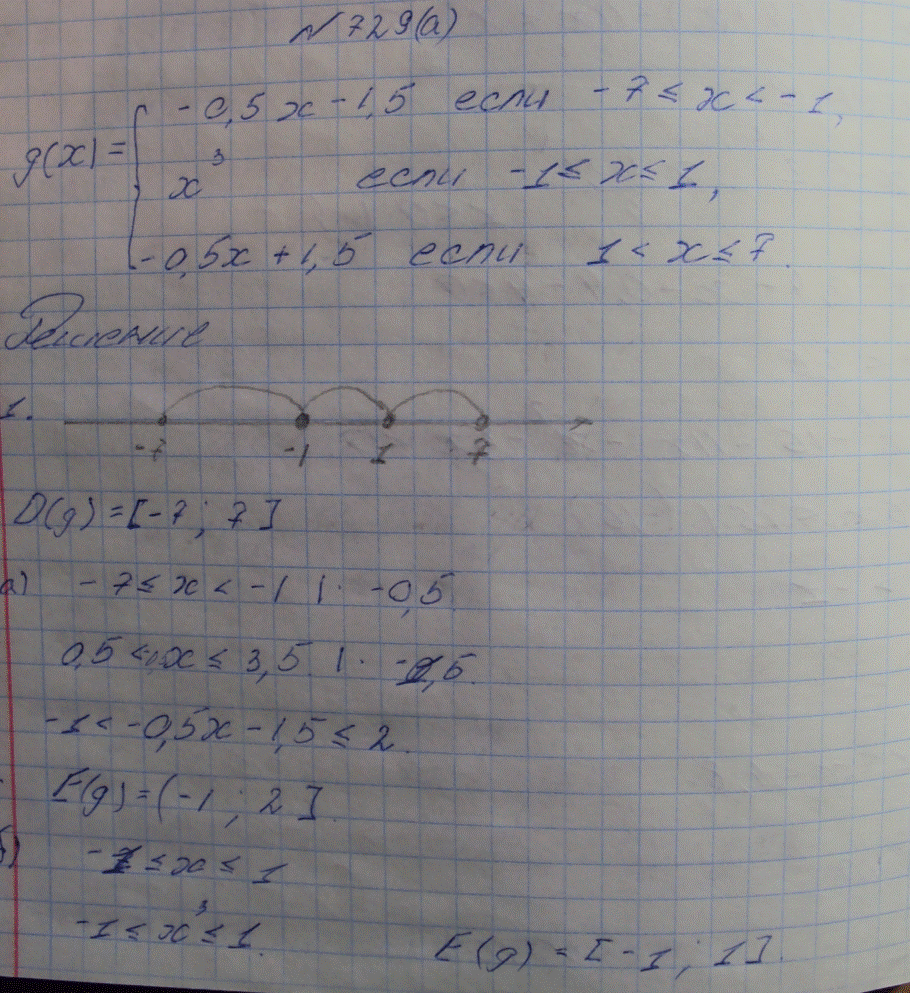 N 729(а)
g(x) = { -0,5x - 1,5 если -7 ≤ x < -1,
x³ если -1 ≤ x ≤ 1,
-0,5x + 1,5 если 1 < x ≤ 7.
Решение
1.
-7 -1 1 7
D(g) = [-7; 7]
а) -7 ≤ x < -1 | · -0,5
0,5 < x ≤ 3,5 | · -1,5.
-1 < -0,5x - 1,5 ≤ 2.
E(g) = (-1; 2].
б) -1 ≤ x ≤ 1
-1 ≤ x³ ≤ 1. E(g) = [-1; 1].